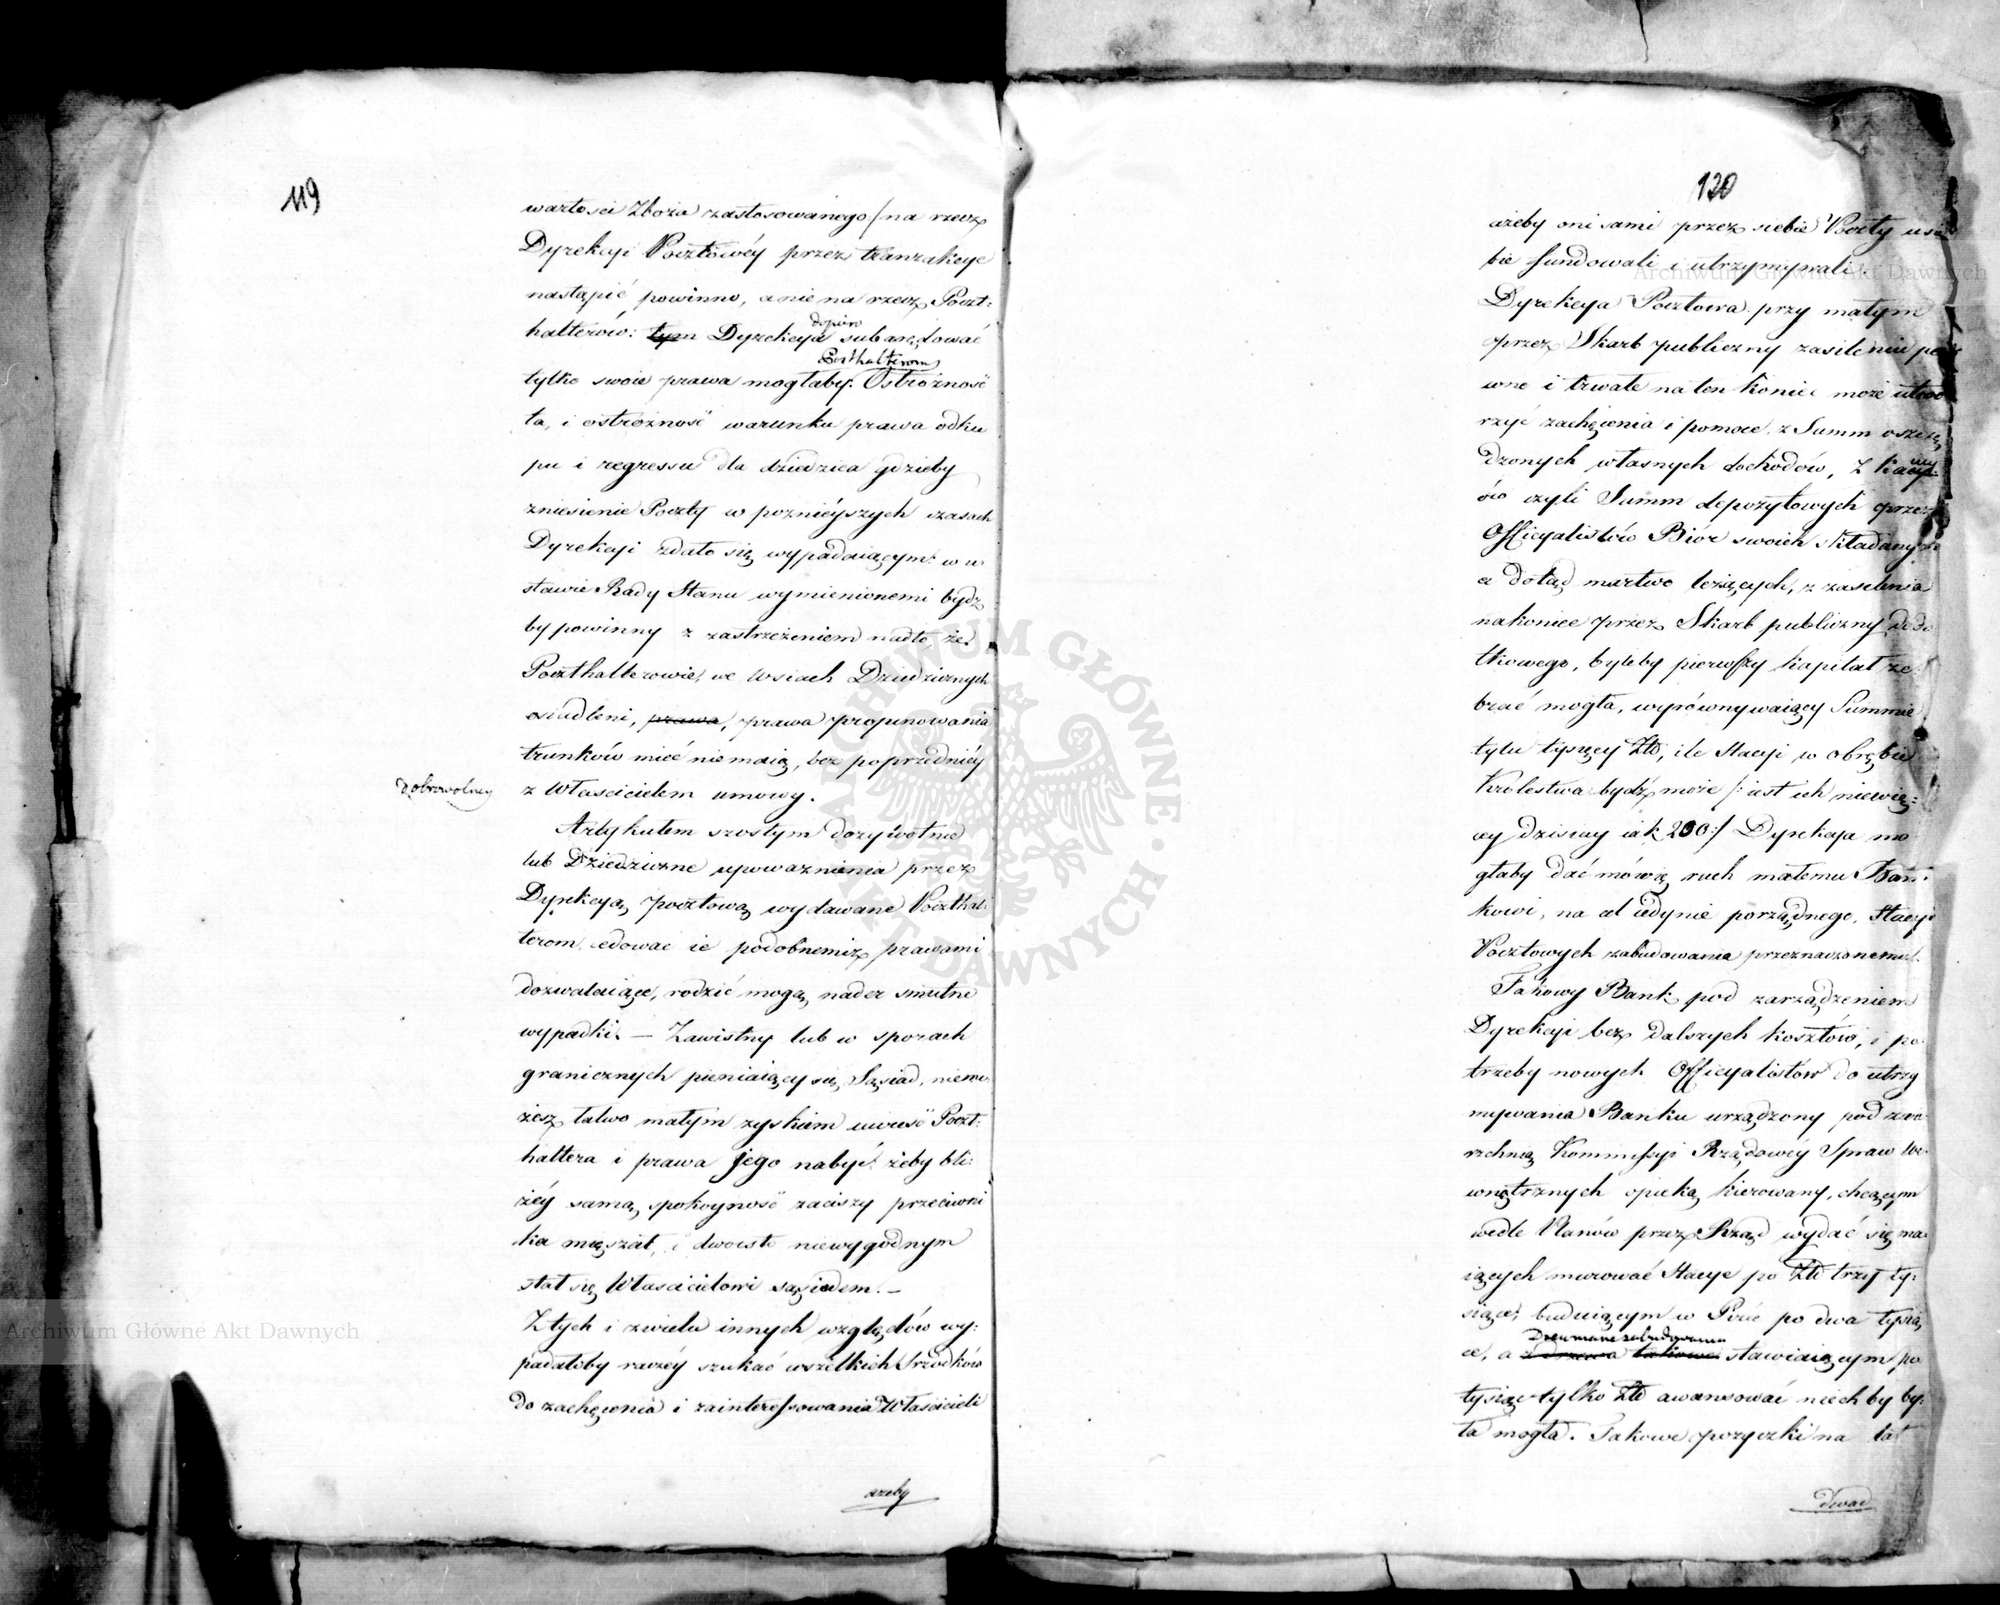 119
wartości Zboża zastosowanego/ na rzecz
Dyrekcyi Pocztowéy przez tranzakcye
nastąpić powinno, a nie na rzecz Poczt:
halterów: tym Dyrekcya dopiero subarędować
tylko swoie prawa mogłaby Poczthalterom. Ostrożność
ta, i ostrożność warunku prawa odku
pu i regressu dla dziedzica gdzieby
zniesienie Poczty w poznieyszych czasach
Dyrekcyi zdało się wypadaiącym: w u
stawie Rady Stanu wymienionemi bydz
by powinny z zastrzeżeniem nadto, że
Poczthalterowie, we wsiach Dziedzicznych
osiadleni, prawa, prawa propinowania
trunków mieć nie maią, bez poprzedniéy
dobrowolney
z Właścicielem umowy.
Artykułem szostym dożywotnie
lub Dziedziczne upoważnienia przez
Dyrekcyą pocztową wydawane Poczthal:
terom, cedować ie podobnemiż prawami
dozwalaiące, rodzić mogą nader smutne
wypadki. — Zawistny lub w sporach
granicznych pieniaiący się Sąsiad, niemo
żesz łatwo małym zyskiem uwieść Poczt:
haltera i prawa jego nabyć żeby bli:
żéy samą spokoyność zaciszy przeciwni
ka mięszał, i dwoisto niewygodnym
stał się Właścicielowi sąsiadem. —
Z tych i z wielu innych względów wy:
padałoby raczéy szukać wszelkich srzodków
do zachęcenia i zainteressowania Właścicieli
ażeby
120
ażeby oni sami przez siebie Poczty u sie
bie fundowali i utrzymywali
Dyrekcya Pocztowa przy małym
przez Skarb publiczny zasileniu pe
wne i trwałe na ten koniec może utwo
rzyć zachęcenia i pomoce, z Summ oszczę
dzonych własnych dochodów, z kaucy:
ów czyli Summ depozytowych przez
Officyalistów Biór swoich składanych
a dotąd martwo leżących, z zasilenia
nakoniec przez Skarb publiczny doda
tkowego, byleby pierwszy kapitał ze
brać mogła, wyrównywaiący Summie
tylu tysięcy Złł, ile Stacyi w obrębie
Królestwa bydź może /: iest ich niewię:
cy dzisiay iak 200:/ Dyrekcya mo
głaby dać mówię ruch małemu Ban:
kowi, na cel iedynie porządnego, Stacyi
Pocztowych zabudowania przeznaczonemu.
Takowy Bank pod zarządzeniem
Dyrekcyi bez dalszych kosztów, i po
trzeby nowych Officyalistów do utrzy
mywania Banku urządzony pod zwie
rzchnią Kommissyi Rządowéy Spraw We
wnętrznych opieką kierowany, chcącym
wedle Planów przez Rząd wydać się ma:
iących murować Stacye po Złł trzy ty:
siące, buduiącym w Pisé po dwa tysią
ce, a z drzewa takowe Drewniane zabudowania stawiaiącym po
tysiąc tylko Złł awansować niechby by:
ła mogła. Takowe pożyczki na lat
dwad
Archiwum Główne Akt Dawnych
Archiwum Główne Akt Dawnych
ARCHIWUM GŁÓWNE · AKT DAWNYCH ·